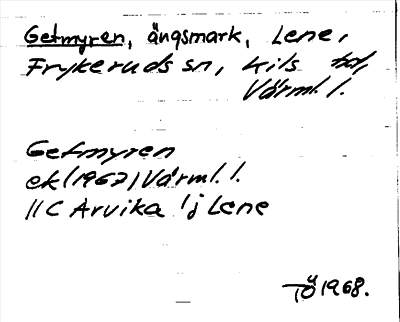 Getmyren, ängsmark, Lene,
Frykeruds sn, Kils hd,
Värml. l.
Getmyren
ek (1967) Värml. l.
11C Arvika ! j Lene
TÖ 1968.